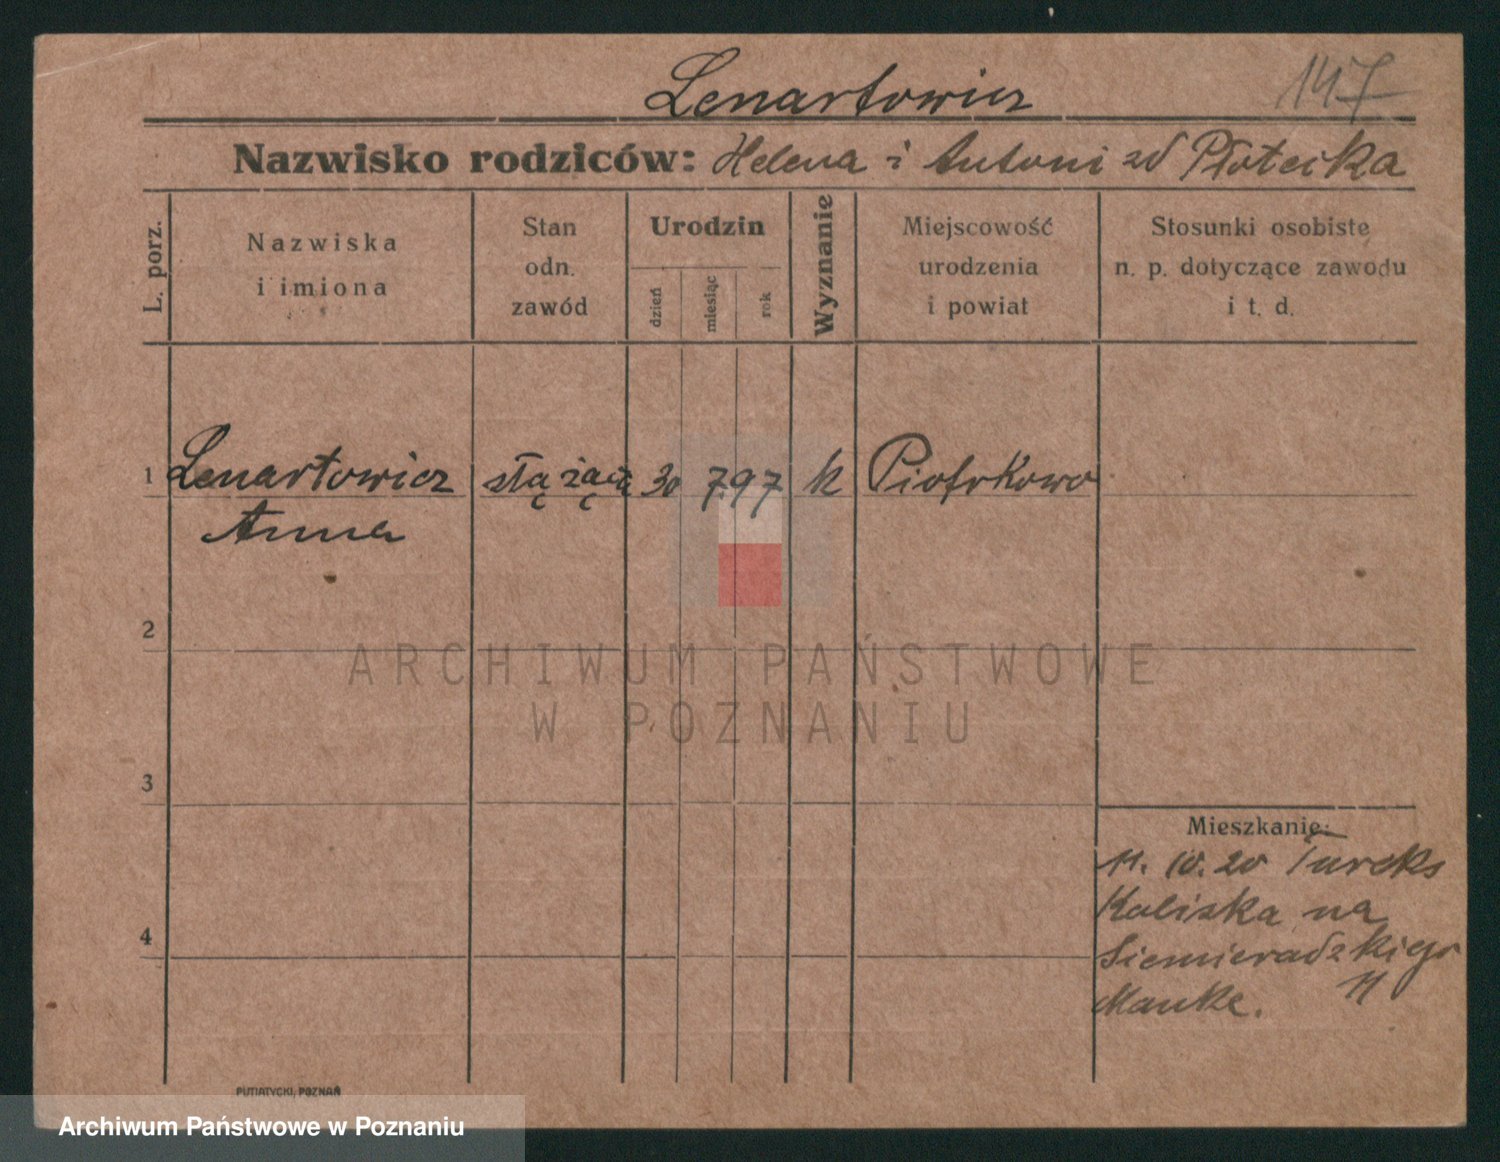 Lenartowicz
147
Nazwisko rodziców: Helena i Antoni zd Płotecka
L. porz.
Nazwiska
i imiona
Stan
odn.
zawód
Urodzin
dzień
miesiąc
rok
Wyznanie
Miejscowość
urodzenia
i powiat
Stosunki osobiste
n. p. dotyczące zawodu
i t. d.
1 Lenartowicz służąca 30 7.97 k Piotrkowo
Anna
2
3
4
ARCHIWUM PAŃSTWOWE
W POZNANIU
Mieszkanie:
11. 10. 20 Tureks
Kaliska na
Siemieradzkiego
11
Manke.
PUTIATYCKI, POZNAŃ
Archiwum Państwowe w Poznaniu